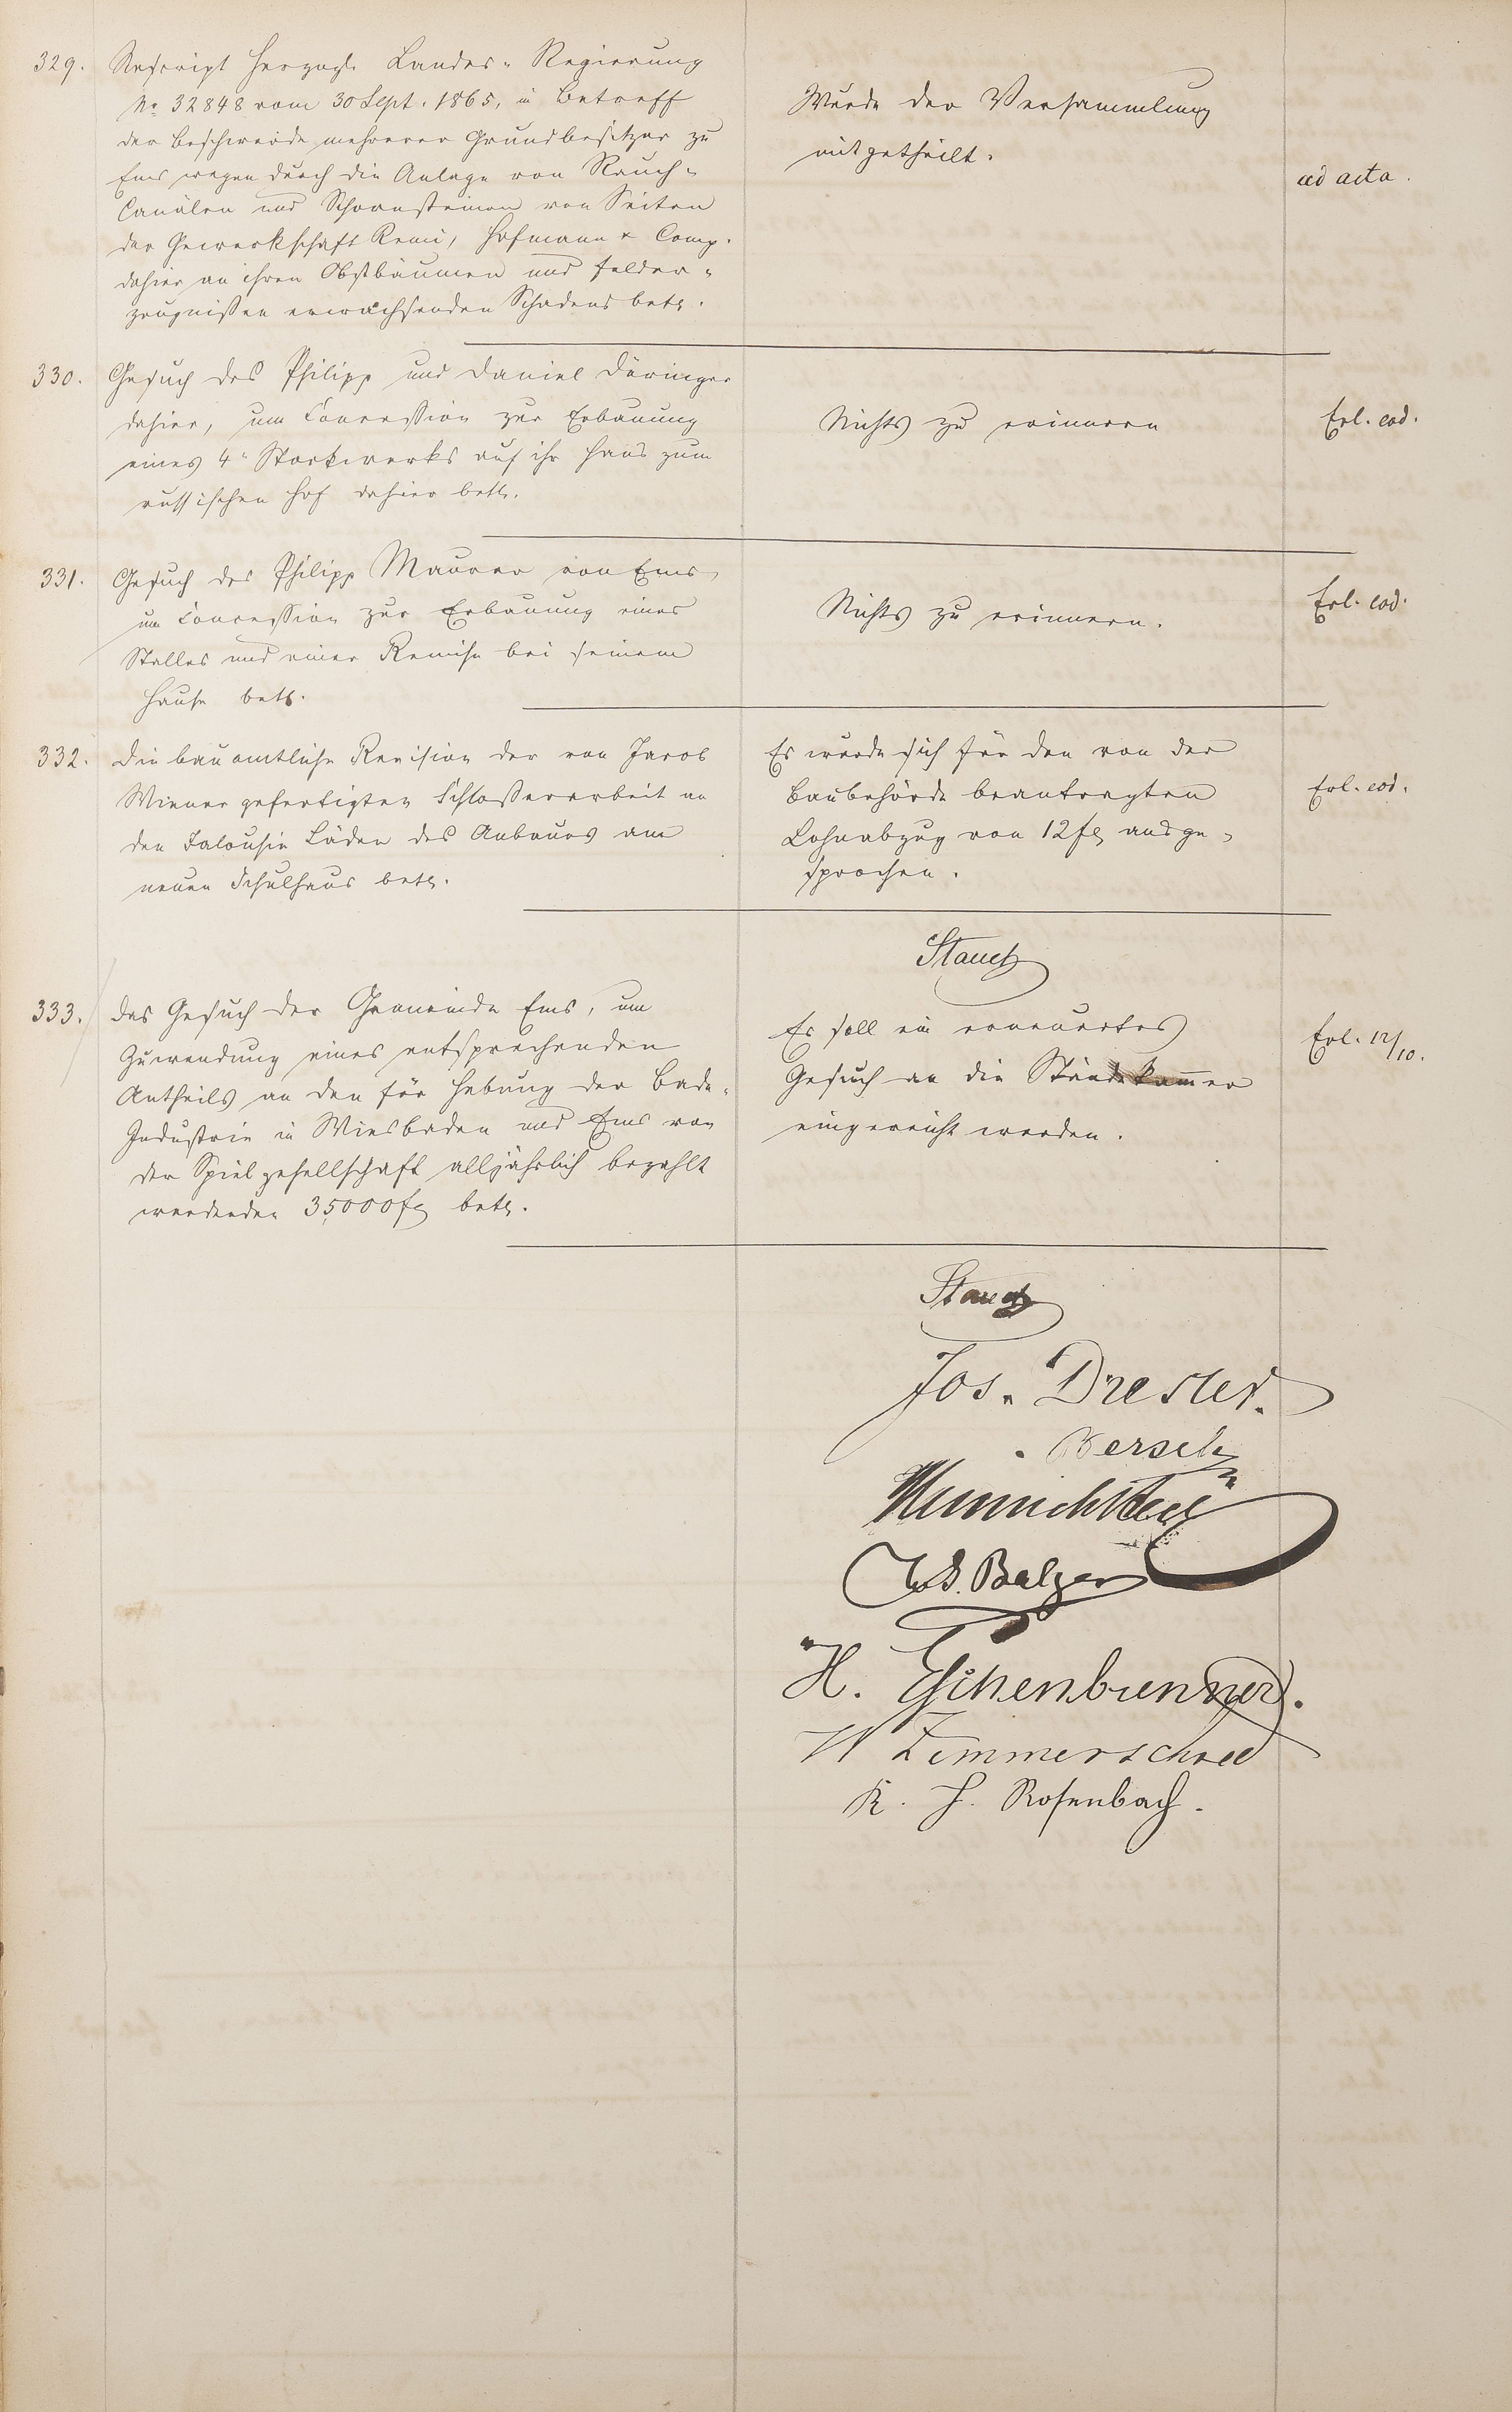 329.
Rescript Herzogl. Landes-Regierung
No 32848 vom 30 Sept. 1865, in Betreff
der Beschwerde mehrerer Grundbesitzer zu
Ems wegen durch die Anlage von Rauch-
Canälen und Schornsteinen von Seiten
der Gewerkschaft Remi, Hofmann & Comp.
dahier an ihren Obstbäumen und Felder-
zeugnißen erwachsenden Schadens betr.
Wurde der Versammlung
mitgetheilt.
ad acta.
330.
Gesuch des Philipp und Daniel Döringer
dahier, um Concession zur Erbauung
eines 4n Stockwerks auf ihr Haus zum
russischen Hof dahier betr.
Nichts zu erinnern
Erl. eod.
331.
Gesuch des Philipp Maurer von Ems,
um Concession zur Erbauung eines
Stalles und einer Remise bei seinem
Hause betr.
Nichts zu erinnern.
Erl. eod.
332.
Die bauamtliche Revision der von Jacob
Wiener gefertigten Schloßerarbeit an
den Jalousie Läden des Anbaues am
neuen Schulhaus betr.
Es wurde sich für den von der
Baubehörde beantragten
Lohnabzug von 12 fl ausge-
sprochen.
Erl. eod.
Stauch
333.
Das Gesuch der Gemeinde Ems, um
Zuwendung eines entsprechenden
Antheils an den für Hebung der Bade-
Industrie in Wiesbaden und Ems von
der Spielgesellschaft alljährlich bezahlt
werdenden 35000 fl betr.
Es soll ein erneuertes
Gesuch an die Ständekammer
eingereicht werden.
Erl. 12/10.
Stauch
Jos. Dresler.
Bersch
J. D. Balzer
H. Eschenbrenner.
W Zimmerschied
K. H. Rosenbach.